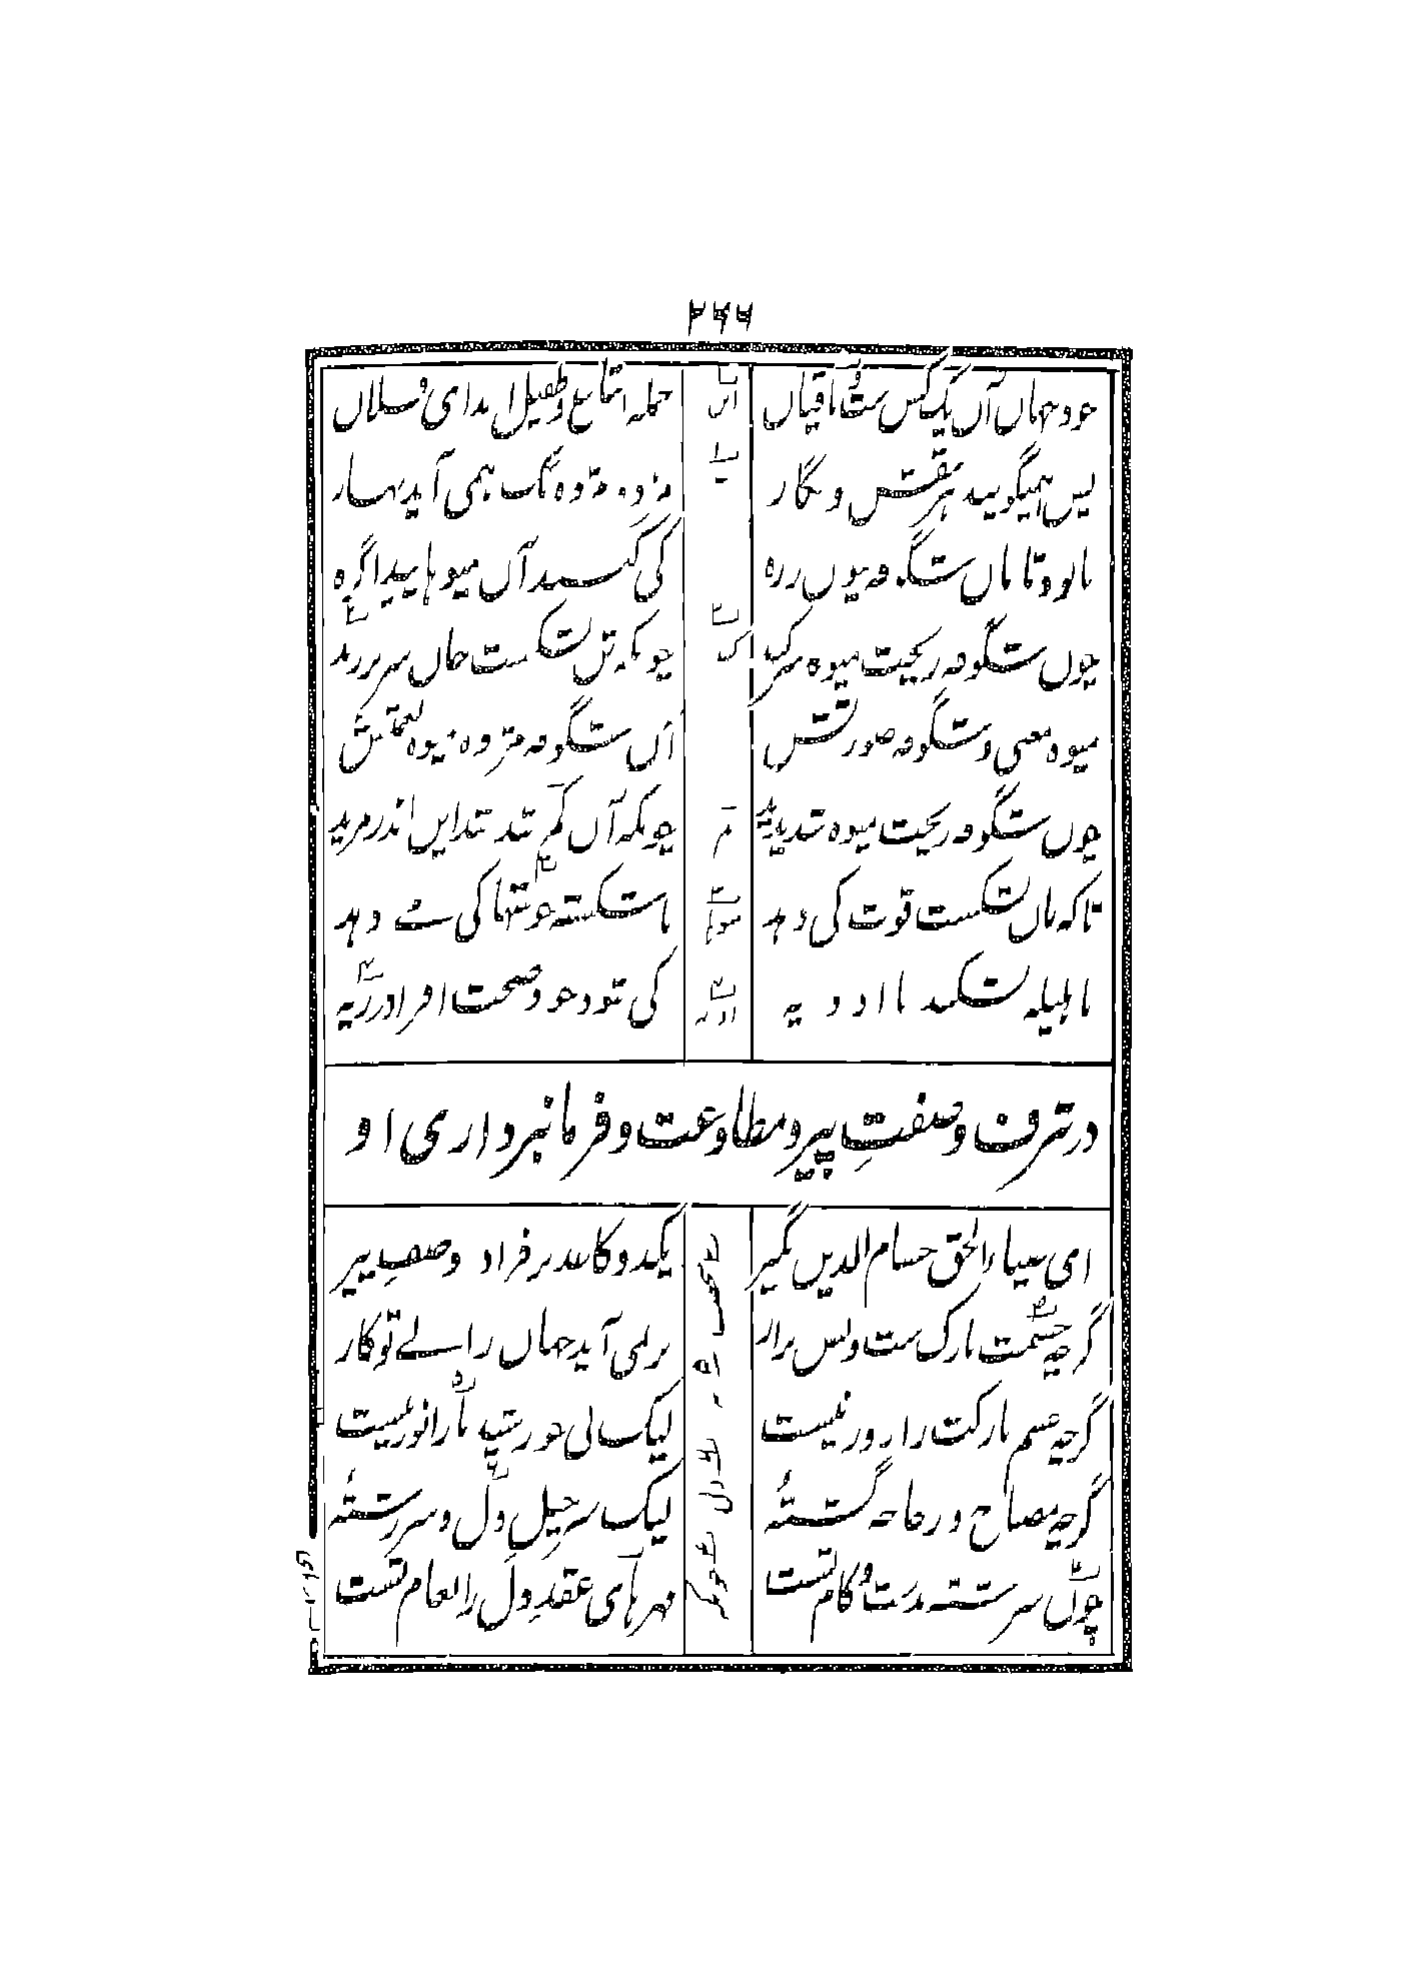 ۲۶۶
خود جهاں آں یک کس ست و باقیاں جمله اتباع و طفیل اند ای فلاں
پس همیگویند هر نقش و نگار مژده مژده نک همی آید بهار
تا بود تاباں شگوفه چوں زره کی کنند آں میوها پیدا گره
چوں شگوفه ریخت میوه سر کند چونکه تن شکست جاں سر برزند
میوه معنی و شگوفه صورتش آں شگوفه مژده میوه نعمتش
چوں شگوفه ریخت میوه شد پدید چونکه آں کم شد شد ایں اندر مزید
تا که ناں نشکست قوت کی دهد ناشکسته خوشها کی مے دهد
تا هلیله نشکند با ادویه کی شود خود صحت افزا درریه
در شرف و صفتِ پیر و مطاوعت و فرمانبرداری او
ای ضیاء الحق حسام الدیں بگیر یکدو کاغذ بر فزا در وصفِ پیر
گرچه جسمت نازک ست و بس نزار بر نمی آید جهاں را بے تو کار
گرچه جسم نازکت را زور نیست لیک بی خورشید ما را نور نیست
گرچه مصباح و زجاجه گشتهٔ لیک سرخیلِ دل و سررشتهٔ
چوں سر رشته بدست و کام تست مهرهای عقد دل ز انعام تست